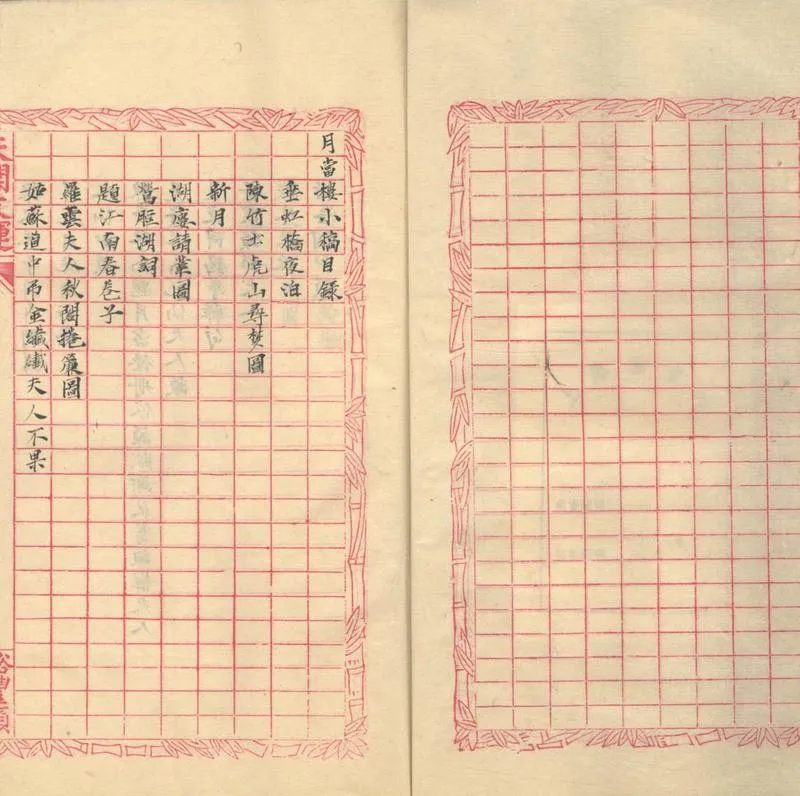 月當樓小稿目錄
垂虹橋夜泊
陳竹士虎山尋夢圖
新月
湖廔請業圖
鶯脰湖詞
題江南春卷子
羅雲夫人秋閣捲簾圖
如蘇道中弔金纖纖夫人不果